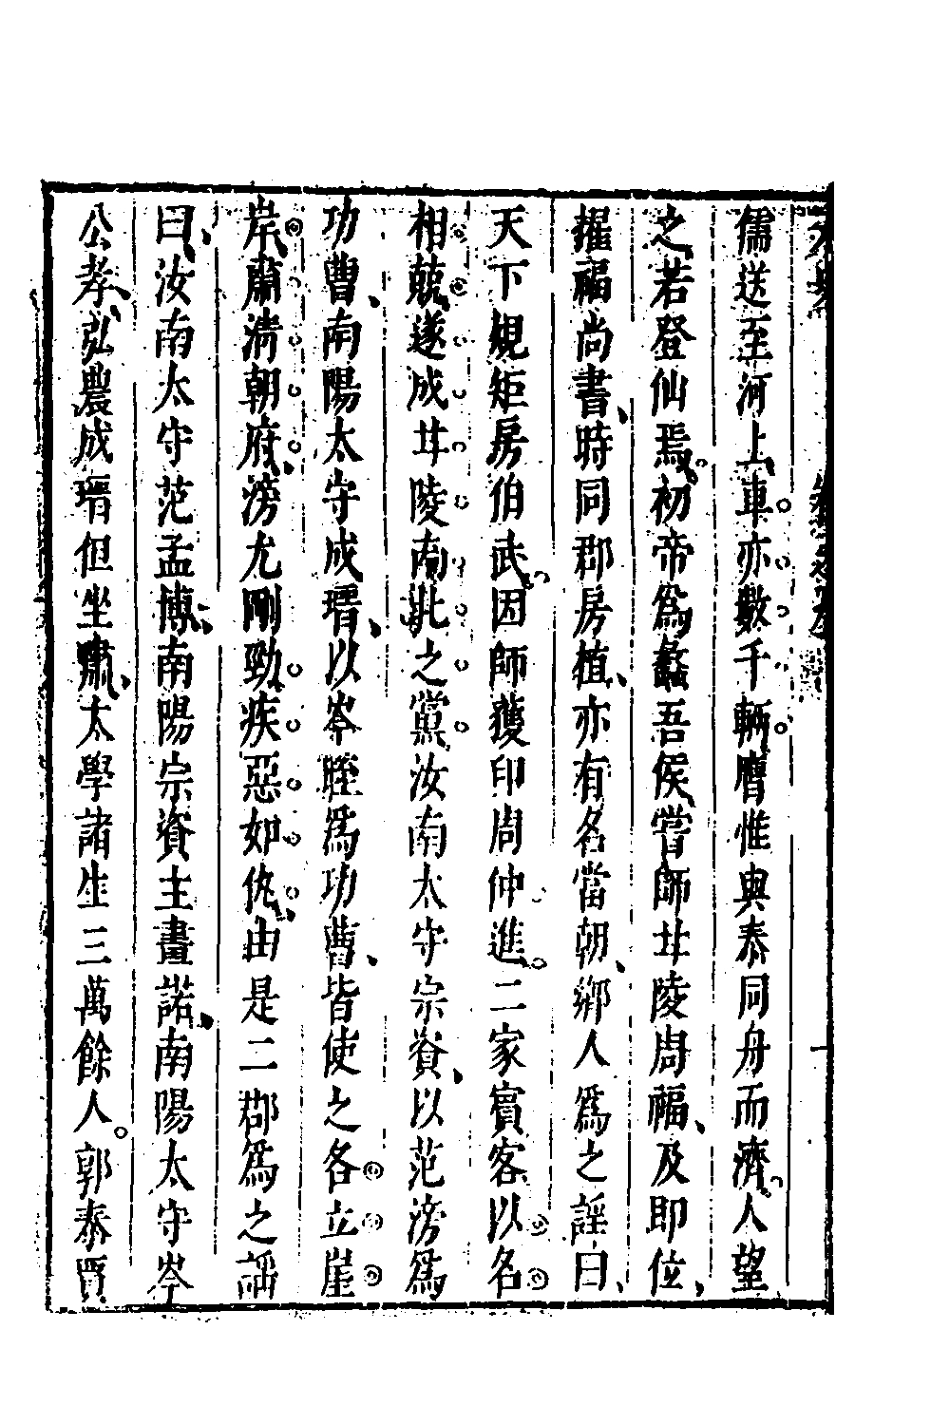 儒送至河上車亦數千輛膺惟與泰同舟而濟人望
之若登仙焉初帝爲蠡吾侯嘗師甘陵周福及卽位
擢福尚書時同郡房植亦有名當朝鄉人爲之謡曰
天下規矩房伯武因師獲印周仲進二家賓客以名
相兢遂成甘陵南北之黨汝南太守宗資以范滂爲
功曹南陽太守成瑨以岑晊爲功曹皆使之各立崖
岸肅清朝府滂尤剛勁疾惡如仇由是二郡爲之謡
曰汝南太守范孟博南陽宗資主畫諾南陽太守岑
公孝弘農成瑨但坐嘯太學諸生三萬餘人郭泰賈